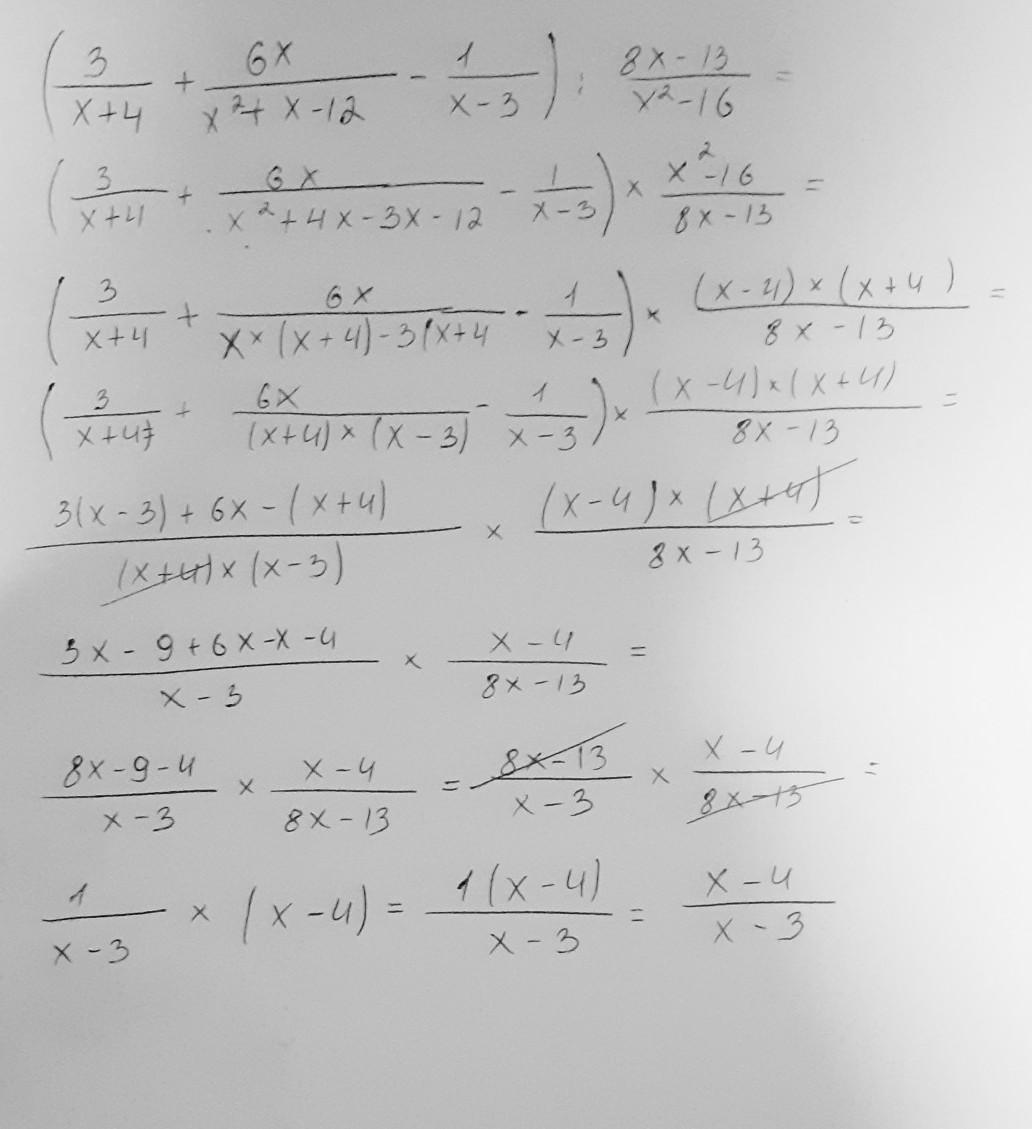 (3/(x+4) + 6x/(x²+x-12) - 1/(x-3)) : (8x-13)/(x²-16) =
(3/(x+4) + 6x/(x²+4x-3x-12) - 1/(x-3)) × (x²-16)/(8x-13) =
(3/(x+4) + 6x/(x×(x+4)-3(x+4) - 1/(x-3)) × ((x-4)×(x+4))/(8x-13) =
(3/(x+4) + 6x/((x+4)×(x-3)) - 1/(x-3)) × ((x-4)×(x+4))/(8x-13) =
(3(x-3)+6x-(x+4))/((x+4)×(x-3)) × ((x-4)×(x+4))/(8x-13) =
(3x-9+6x-x-4)/(x-3) × (x-4)/(8x-13) =
(8x-9-4)/(x-3) × (x-4)/(8x-13) = (8x-13)/(x-3) × (x-4)/(8x-13) =
1/(x-3) × (x-4) = 1(x-4)/(x-3) = (x-4)/(x-3)